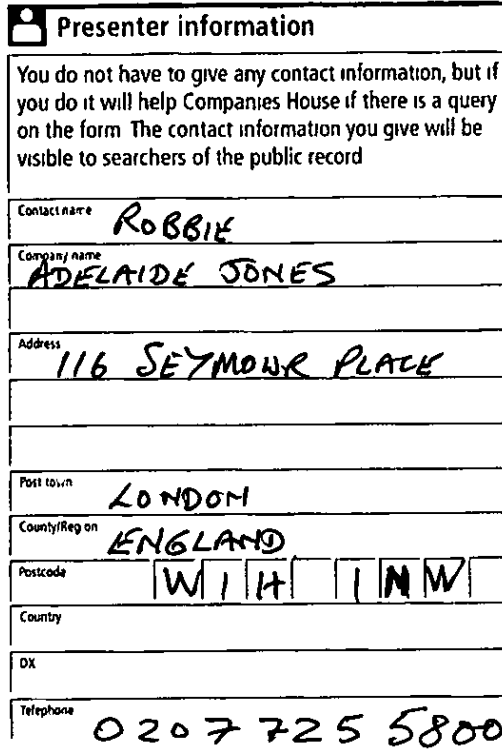 Presenter information
You do not have to give any contact information, but if
you do it will help Companies House if there is a query
on the form The contact information you give will be
visible to searchers of the public record
Contact name ROBBIE
Company name ADELAIDE JONES
Address 116 SEYMOUR PLACE
Post town LONDON
County/Region ENGLAND
Postcode W1H 1NW
Country
DX
Telephone 0207 725 5800